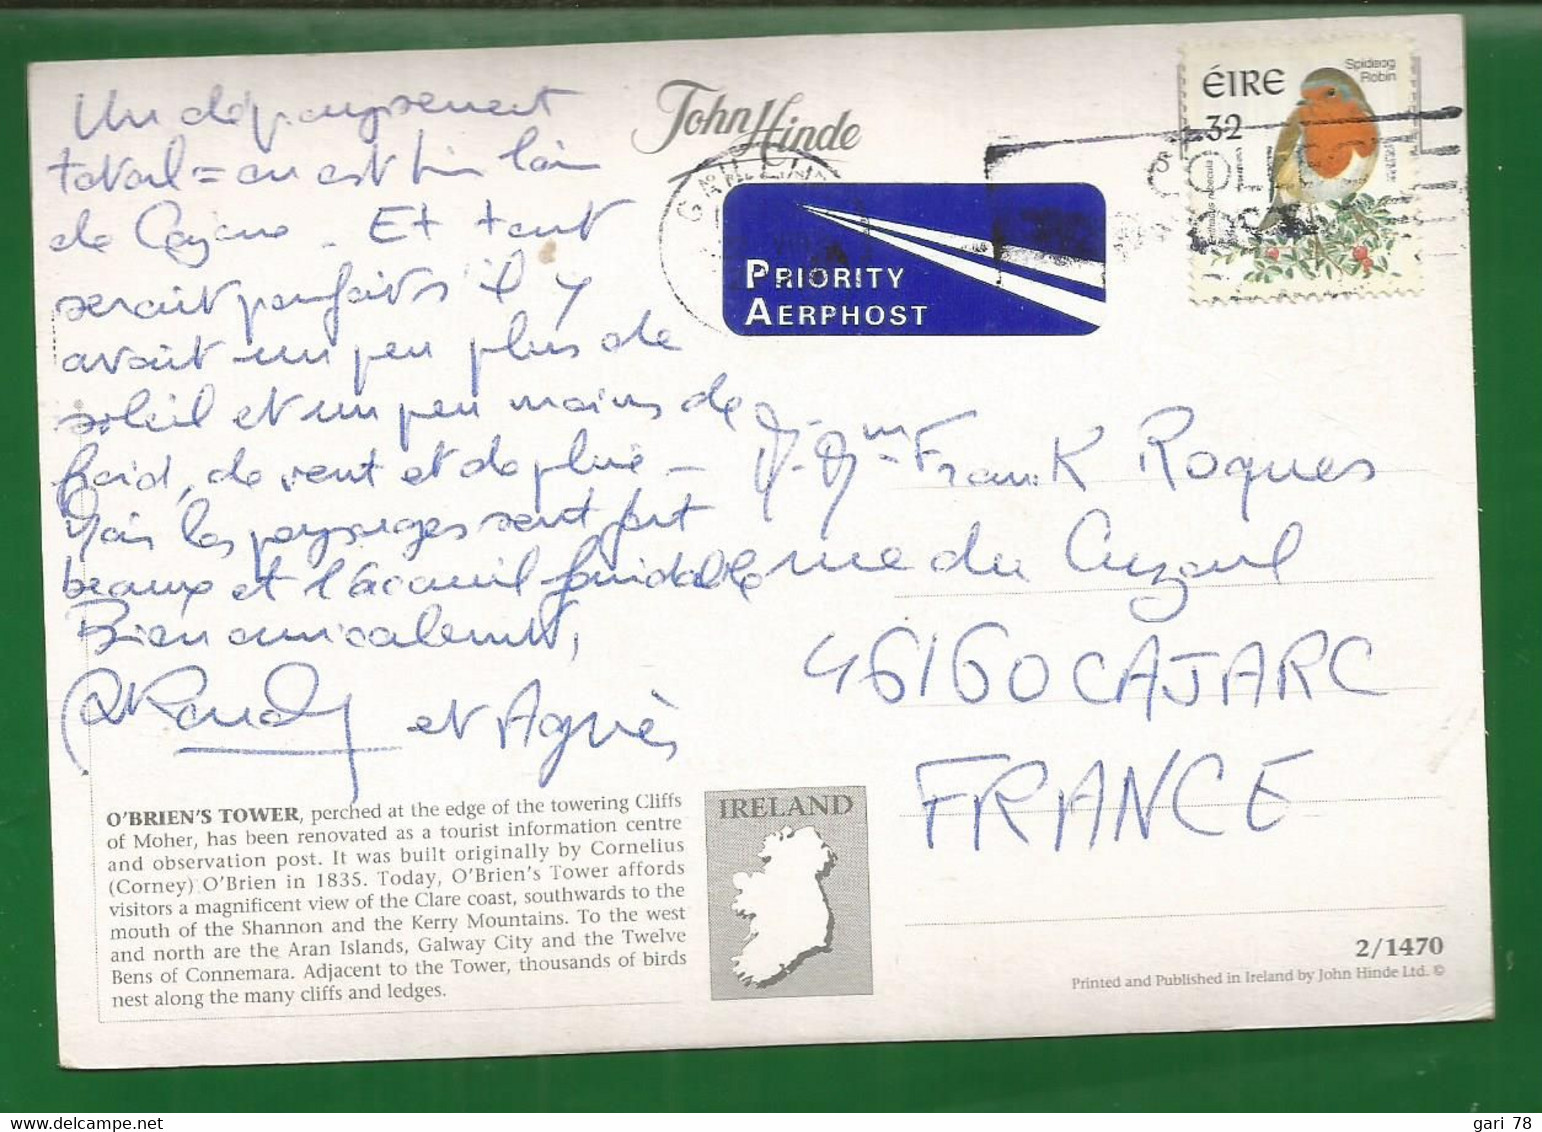 Un dépaysement
total = on est bien loin
de Cayenne. Et tout
serait parfait s'il y
avait un peu plus de
soleil et un peu moins de
froid, de vent et de pluie -
Mais les paysages sont fort
beaux et l'accueil formidable
Bien amicalement,
et Agnès
John Hinde
PRIORITY
AERPHOST
ÉIRE
32
Spideog
Robin
Erithacus rubecula
M. Mme Franck Roques
rue du Cuzoul
46160 CAJARC
FRANCE
O'BRIEN'S TOWER, perched at the edge of the towering Cliffs
of Moher, has been renovated as a tourist information centre
and observation post. It was built originally by Cornelius
(Corney) O'Brien in 1835. Today, O'Brien's Tower affords
visitors a magnificent view of the Clare coast, southwards to the
mouth of the Shannon and the Kerry Mountains. To the west
and north are the Aran Islands, Galway City and the Twelve
Bens of Connemara. Adjacent to the Tower, thousands of birds
nest along the many cliffs and ledges.
IRELAND
2/1470
Printed and Published in Ireland by John Hinde Ltd. ©
gari 78